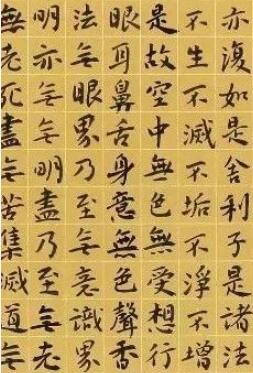 亦復如是舍利子是諸法
不生不滅不垢不淨不增
是故空中無色無受想行
眼耳鼻舌身意無色聲香
法無眼界乃至無意識界
明亦無無明盡乃至無老
無老死盡無苦集滅道無